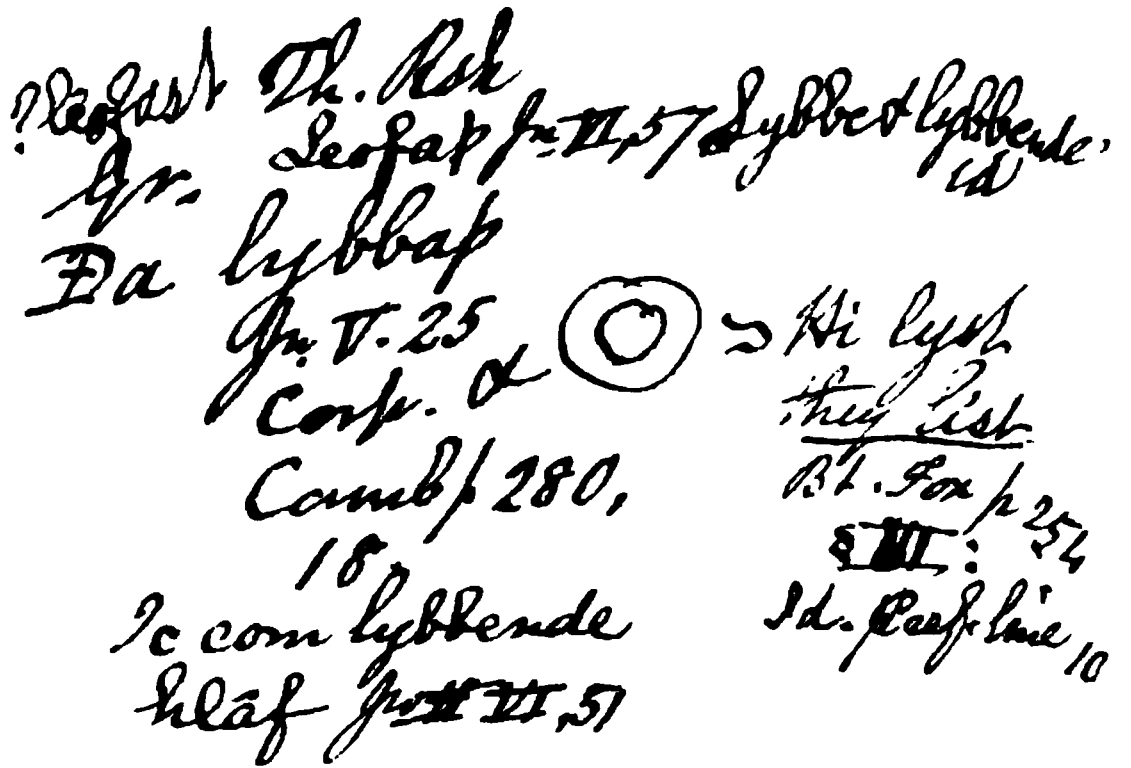 ?leofast Th. Rsk
Gr. Leofaþ Jn. VI, 57 Lybbe & lybbende.
id
Ða lybbaþ
Jn. V. 25
Corp. &
Camb p 280,
18.
Ic com lybbende
hlâf Jn VI, 51
Hi lyst
they list
Bt. Fox p 254
§ :
Id. line 10